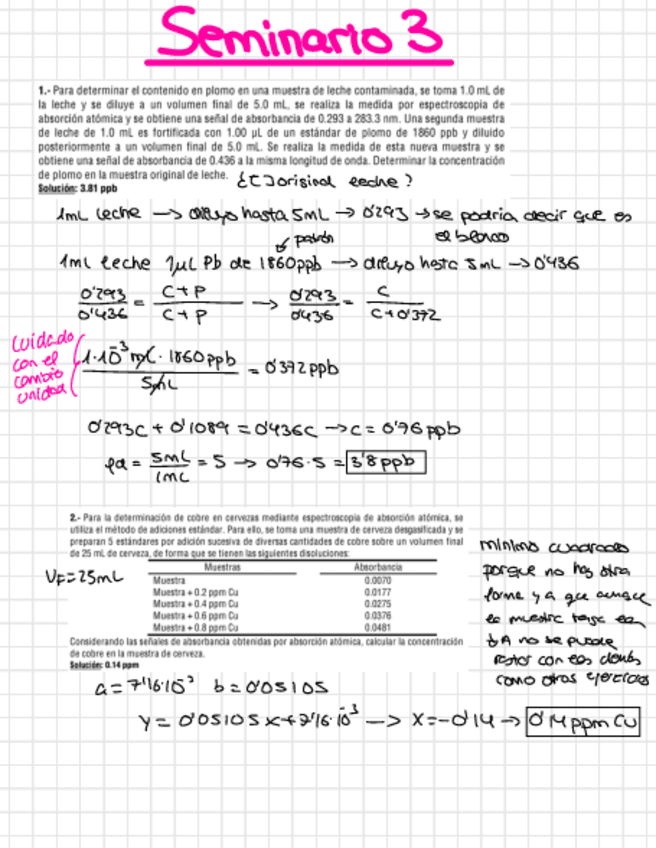 Seminario 3
1.- Para determinar el contenido en plomo en una muestra de leche contaminada, se toma 1.0 mL de
la leche y se diluye a un volumen final de 5.0 mL, se realiza la medida por espectroscopia de
absorción atómica y se obtiene una señal de absorbancia de 0.293 a 283.3 nm. Una segunda muestra
de leche de 1.0 mL es fortificada con 1.00 µL de un estándar de plomo de 1860 ppb y diluido
posteriormente a un volumen final de 5.0 mL. Se realiza la medida de esta nueva muestra y se
obtiene una señal de absorbancia de 0.436 a la misma longitud de onda. Determinar la concentración
de plomo en la muestra original de leche. ¿[C] original leche?
Solución: 3.81 ppb
1mL leche → diluyo hasta 5mL → 0'293 → se podría decir que es
el blanco
patrón
1mL leche 1µL Pb de 1860ppb → diluyo hasta 5mL → 0'436
0'293/0'436 = C+P/C+P → 0'293/0'436 = C/C+0'372
Cuidado
con el
cambio
unidad
1·10⁻³ mL · 1860ppb / 5mL = 0'372ppb
0'293C + 0'1089 = 0'436C → C = 0'76ppb
fd = 5mL/1mL = 5 → 0'76·5 = 3'8ppb
2.- Para la determinación de cobre en cervezas mediante espectroscopia de absorción atómica, se
utiliza el método de adiciones estándar. Para ello, se toma una muestra de cerveza desgasificada y se
preparan 5 estándares por adición sucesiva de diversas cantidades de cobre sobre un volumen final
de 25 mL de cerveza, de forma que se tienen las siguientes disoluciones:
VF=25mL
Muestras Absorbancia
Muestra 0.0070
Muestra + 0.2 ppm Cu 0.0177
Muestra + 0.4 ppm Cu 0.0275
Muestra + 0.6 ppm Cu 0.0376
Muestra + 0.8 ppm Cu 0.0481
mínimo cuadrados
porque no hay otra
forma ya que aunque
la muestra tenga
A no se puede
restar con los demás
como otros ejercicios
Considerando las señales de absorbancia obtenidas por absorción atómica, calcular la concentración
de cobre en la muestra de cerveza.
Solución: 0.14 ppm
a = 7'16·10⁻³ b = 0'05105
y = 0'05105x+7'16·10⁻³ → x=-0'14 → 0'14ppm Cu